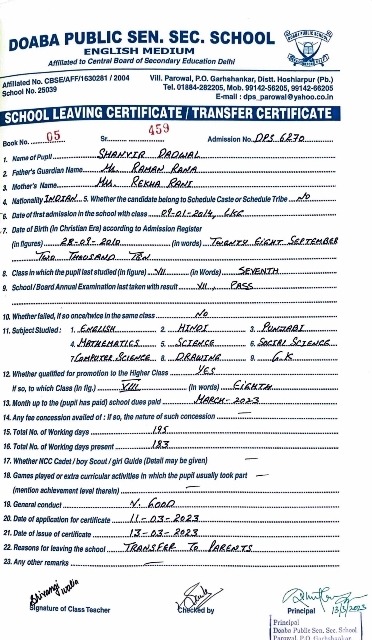 DOABA PUBLIC SEN. SEC. SCHOOL
ENGLISH MEDIUM
Affiliated to Central Board of Secondary Education Delhi
Affiliated No. CBSE/AFF/1630281 / 2004 Vill. Parowal, P.O. Garhshankar, Distt. Hoshiarpur (Pb.)
School No. 25039 Tel. 01884-282205, Mob. 99142-56205, 99142-66205
E-mail : dps_parowal@yahoo.co.in
SCHOOL LEAVING CERTIFICATE / TRANSFER CERTIFICATE
Book No. 05 Sr. 459 Admission No. DPS 6270
1. Name of Pupil SHANVIR DADWAL
2. Father's Guardian Name Mr. RAMAN RANA
3. Mother's Name Mrs. REKHA RANI
4. Nationality INDIAN 5. Whether the candidate belong to Schedule Caste or Schedule Tribe No
6. Date of first admission in the school with class 09-01-2014, LKG
7. Date of Birth (In Christian Era) according to Admission Register
(in figures) 28-09-2010 (in words) TWENTY EIGHT SEPTEMBER
TWO THOUSAND TEN
8. Class in which the pupil last studied (in figure) VII (in Words) SEVENTH
9. School / Board Annual Examination last taken with result VII, PASS
10. Whether failed, if so once/twice in the same class No
11. Subject Studied : 1. ENGLISH 2. HINDI 3. PUNJABI
4. MATHEMATICS 5. SCIENCE 6. SOCIAL SCIENCE
7. COMPUTER SCIENCE 8. DRAWING 9. G.K
12. Whether qualified for promotion to the Higher Class YES
If so, to which Class (in fig.) VIII (in words) EIGHTH
13. Month up to the (pupil has paid) school dues paid MARCH-2023
14. Any fee concession availed of : If so, the nature of such concession —
15. Total No. of Working days 195
16. Total No. of Working days present 183
17. Whether NCC Cadet / boy Scout / girl Guide (Detail may be given) —
18. Games played or extra curricular activities in which the pupil usually took part —
(mention achievement level therein) —
19. General conduct V. GOOD
20. Date of application for certificate 11-03-2023
21. Date of issue of certificate 13-03-2023
22. Reasons for leaving the school TRANSFER TO PARENTS
23. Any other remarks —
Shivangi
Signature of Class Teacher Checked by Principal 13/3/2023
Principal
Doaba Public Sen. Sec. School
Parowal, P.O. Garhshankar